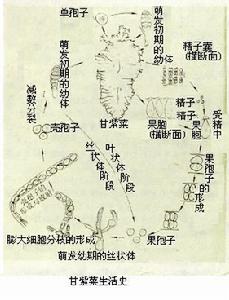 单孢子
萌发初期的幼体
萌发初期的幼体
精子囊
(横断面)
减数分裂
甘紫菜
果胞
(横断面)
精子
精子
果胞
受精中
壳孢子
叶状体阶段
丝状体阶段
果孢子的形成
膨大细胞分枝的形成
果孢子
萌发幼期的丝状体
甘紫菜生活史